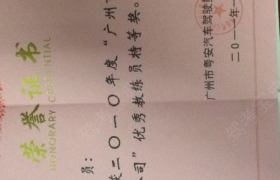 荣誉证书
HONORARY CREDENTIAL
员：
二〇一〇年度“广州市
公司”优秀教练员特等奖。
广州市粤安汽车驾驶
二〇一一年